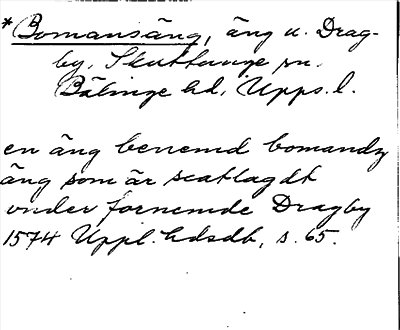 *Bomansäng, äng u. Drag-
by, Skuttunge sn.
Bälinge hd, Upps. l.
en äng benemd bomandz
äng som är scatlagdt
vnder förnemde Dragby
1574 Uppl. hdsdb, s. 65.